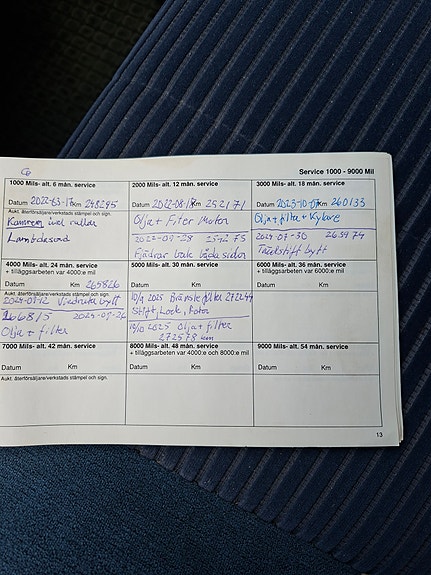 Service 1000 - 9000 Mil
1000 Mils- alt. 6 mån. service
Datum 2022-03-17 Km 248295
Aukt. återförsäljare/verkstads stämpel och sign.
Kamrem inkl rullar
Lambdasond
2000 Mils- alt. 12 mån. service
Datum 2022-08-18 Km 252171
Olja + Filter Motor
Fjädrar bak båda sidor
3000 Mils- alt. 18 mån. service
Datum 2023-10- Km 260133
Olja + filter + Kylare
2024-07-30 265974
Tändstift bytt
4000 Mils- alt. 24 mån. service
+ tilläggsarbeten var 4000:e mil
Datum Km 265826
2024-07-12 Vindruta bytt
266815 2024-09-26
Olja + filter
5000 Mils- alt. 30 mån. service
10/9 2025 Bränslefilter 272244
Stift, Lock, Rotor
2025 Olja + filter
272578 km
6000 Mils- alt. 36 mån. service
+ tilläggsarbeten var 6000:e mil
Datum Km
7000 Mils- alt. 42 mån. service
Datum Km
Aukt. återförsäljare/verkstads stämpel och sign.
8000 Mils- alt. 48 mån. service
+ tilläggsarbeten var 4000:e och 8000:e mil
Datum Km
9000 Mils- alt. 54 mån. service
Datum Km
13